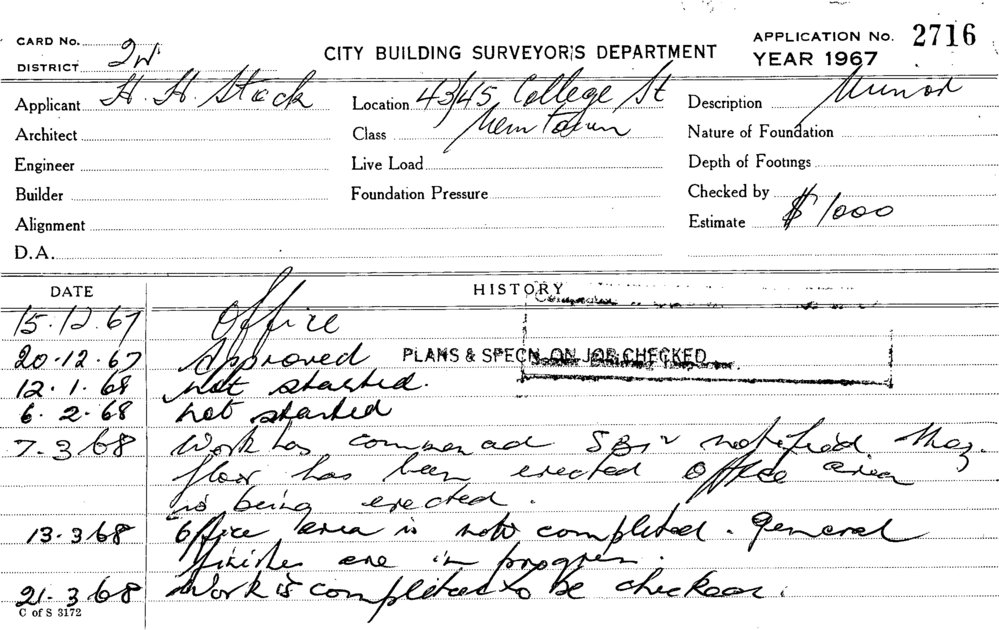 CARD No.
DISTRICT 2W
CITY BUILDING SURVEYOR'S DEPARTMENT
APPLICATION No. 2716
YEAR 1967
Applicant H. H. Stack
Location 43/45 College St
Description Minor
Architect
Class
Nature of Foundation
Engineer
Live Load
Depth of Footings
Builder
Foundation Pressure
Checked by
Alignment
Estimate $1000
D.A.
DATE
HISTORY
15.12.67 Office
20.12.67 Approved PLANS & SPECN. ON JOB CHECKED
12.1.68 not started.
6.2.68 not started
7.3.68 Work has notified Mez.
floor has been erected office area
is being erected.
13.3.68 Office area is now completed. General
finishes are in progress.
21.3.68 Work is completed to be checked.
C of S 3172